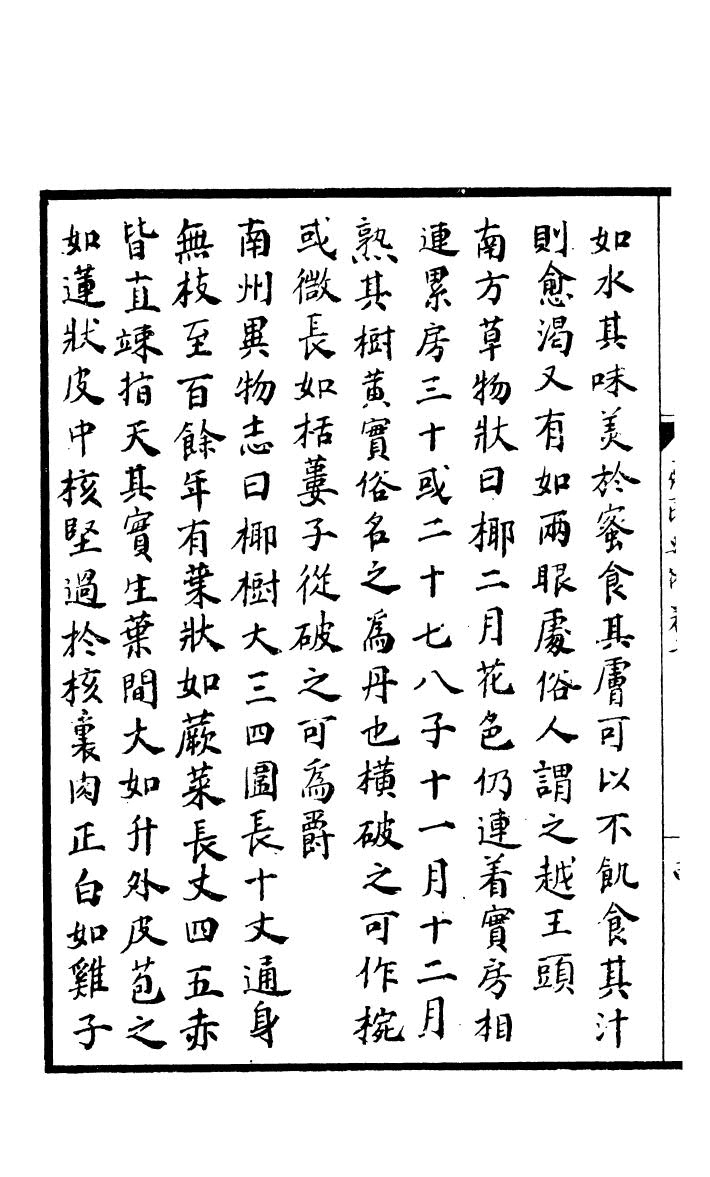 如水其味美於蜜食其膚可以不飢食其汁
則愈渴又有如兩眼處俗人謂之越王頭
南方草物狀曰椰二月花色仍連着實房相
連累房三十或二十七八子十一月十二月
熟其樹黄實俗名之為丹也横破之可作椀
或微長如栝蔞子從破之可為爵
南州異物志曰椰樹大三四圍長十丈通身
無枝至百餘年有葉狀如蕨菜長丈四五赤
皆直竦指天其實生葉間大如升外皮苞之
如蓮狀皮中核堅過於核裏肉正白如雞子